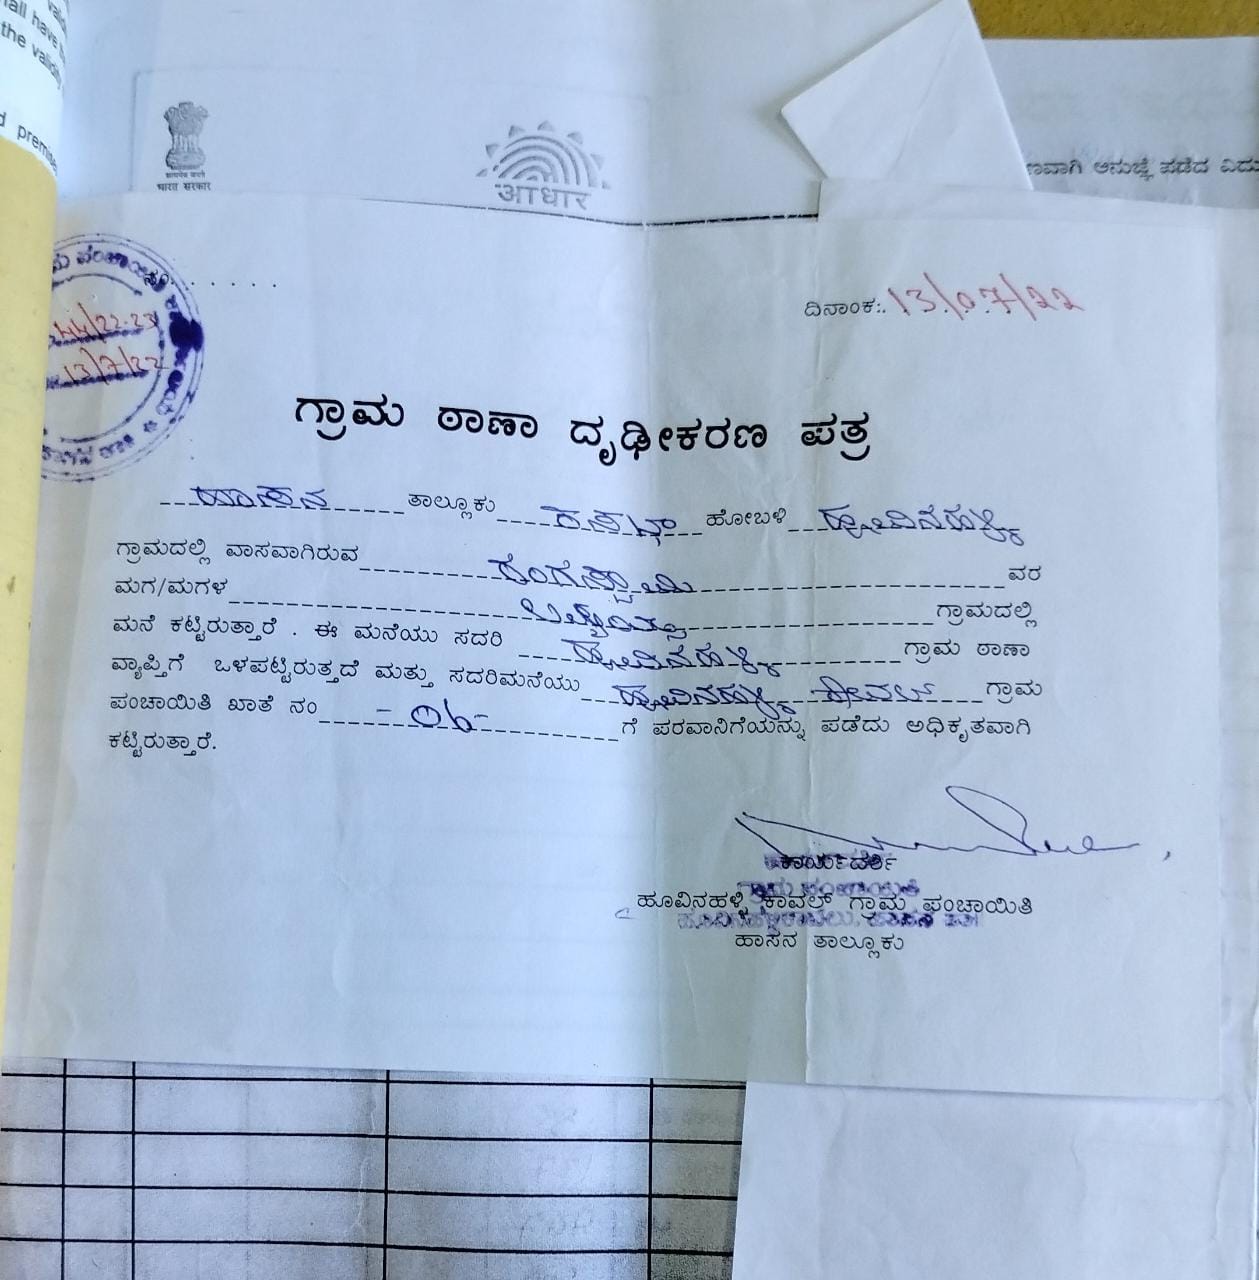 all have
the validity
d premises
भारत सरकार
आधार
ಅನುಜ್ಞೆ ಪಡೆದ
44/22-23
13/7/22
ದಿನಾಂಕ:. 13/07/22
ಗ್ರಾಮ ಠಾಣಾ ದೃಢೀಕರಣ ಪತ್ರ
ಹಾಸನ ತಾಲ್ಲೂಕು ಕಸಬಾ ಹೋಬಳಿ ಹೂವಿನಹಳ್ಳಿ
ಗ್ರಾಮದಲ್ಲಿ ವಾಸವಾಗಿರುವ ರಂಗಸ್ವಾಮಿ ವರ
ಮಗ/ಮಗಳ ಗ್ರಾಮದಲ್ಲಿ
ಮನೆ ಕಟ್ಟಿರುತ್ತಾರೆ . ಈ ಮನೆಯು ಸದರಿ ಹೂವಿನಹಳ್ಳಿ ಗ್ರಾಮ ಠಾಣಾ
ವ್ಯಾಪ್ತಿಗೆ ಒಳಪಟ್ಟಿರುತ್ತದೆ ಮತ್ತು ಸದರಿಮನೆಯು ಹೂವಿನಹಳ್ಳಿ ಕಾವಲ್ ಗ್ರಾಮ
ಪಂಚಾಯಿತಿ ಖಾತೆ ನಂ -06- ಗೆ ಪರವಾನಿಗೆಯನ್ನು ಪಡೆದು ಅಧಿಕೃತವಾಗಿ
ಕಟ್ಟಿರುತ್ತಾರೆ.
ಕಾರ್ಯದರ್ಶಿ
ಗ್ರಾಮ ಪಂಚಾಯಿತಿ
ಹೂವಿನಹಳ್ಳಿ ಕಾವಲ್ ಗ್ರಾಮ ಪಂಚಾಯಿತಿ
ಹಾಸನ ತಾಲ್ಲೂಕು